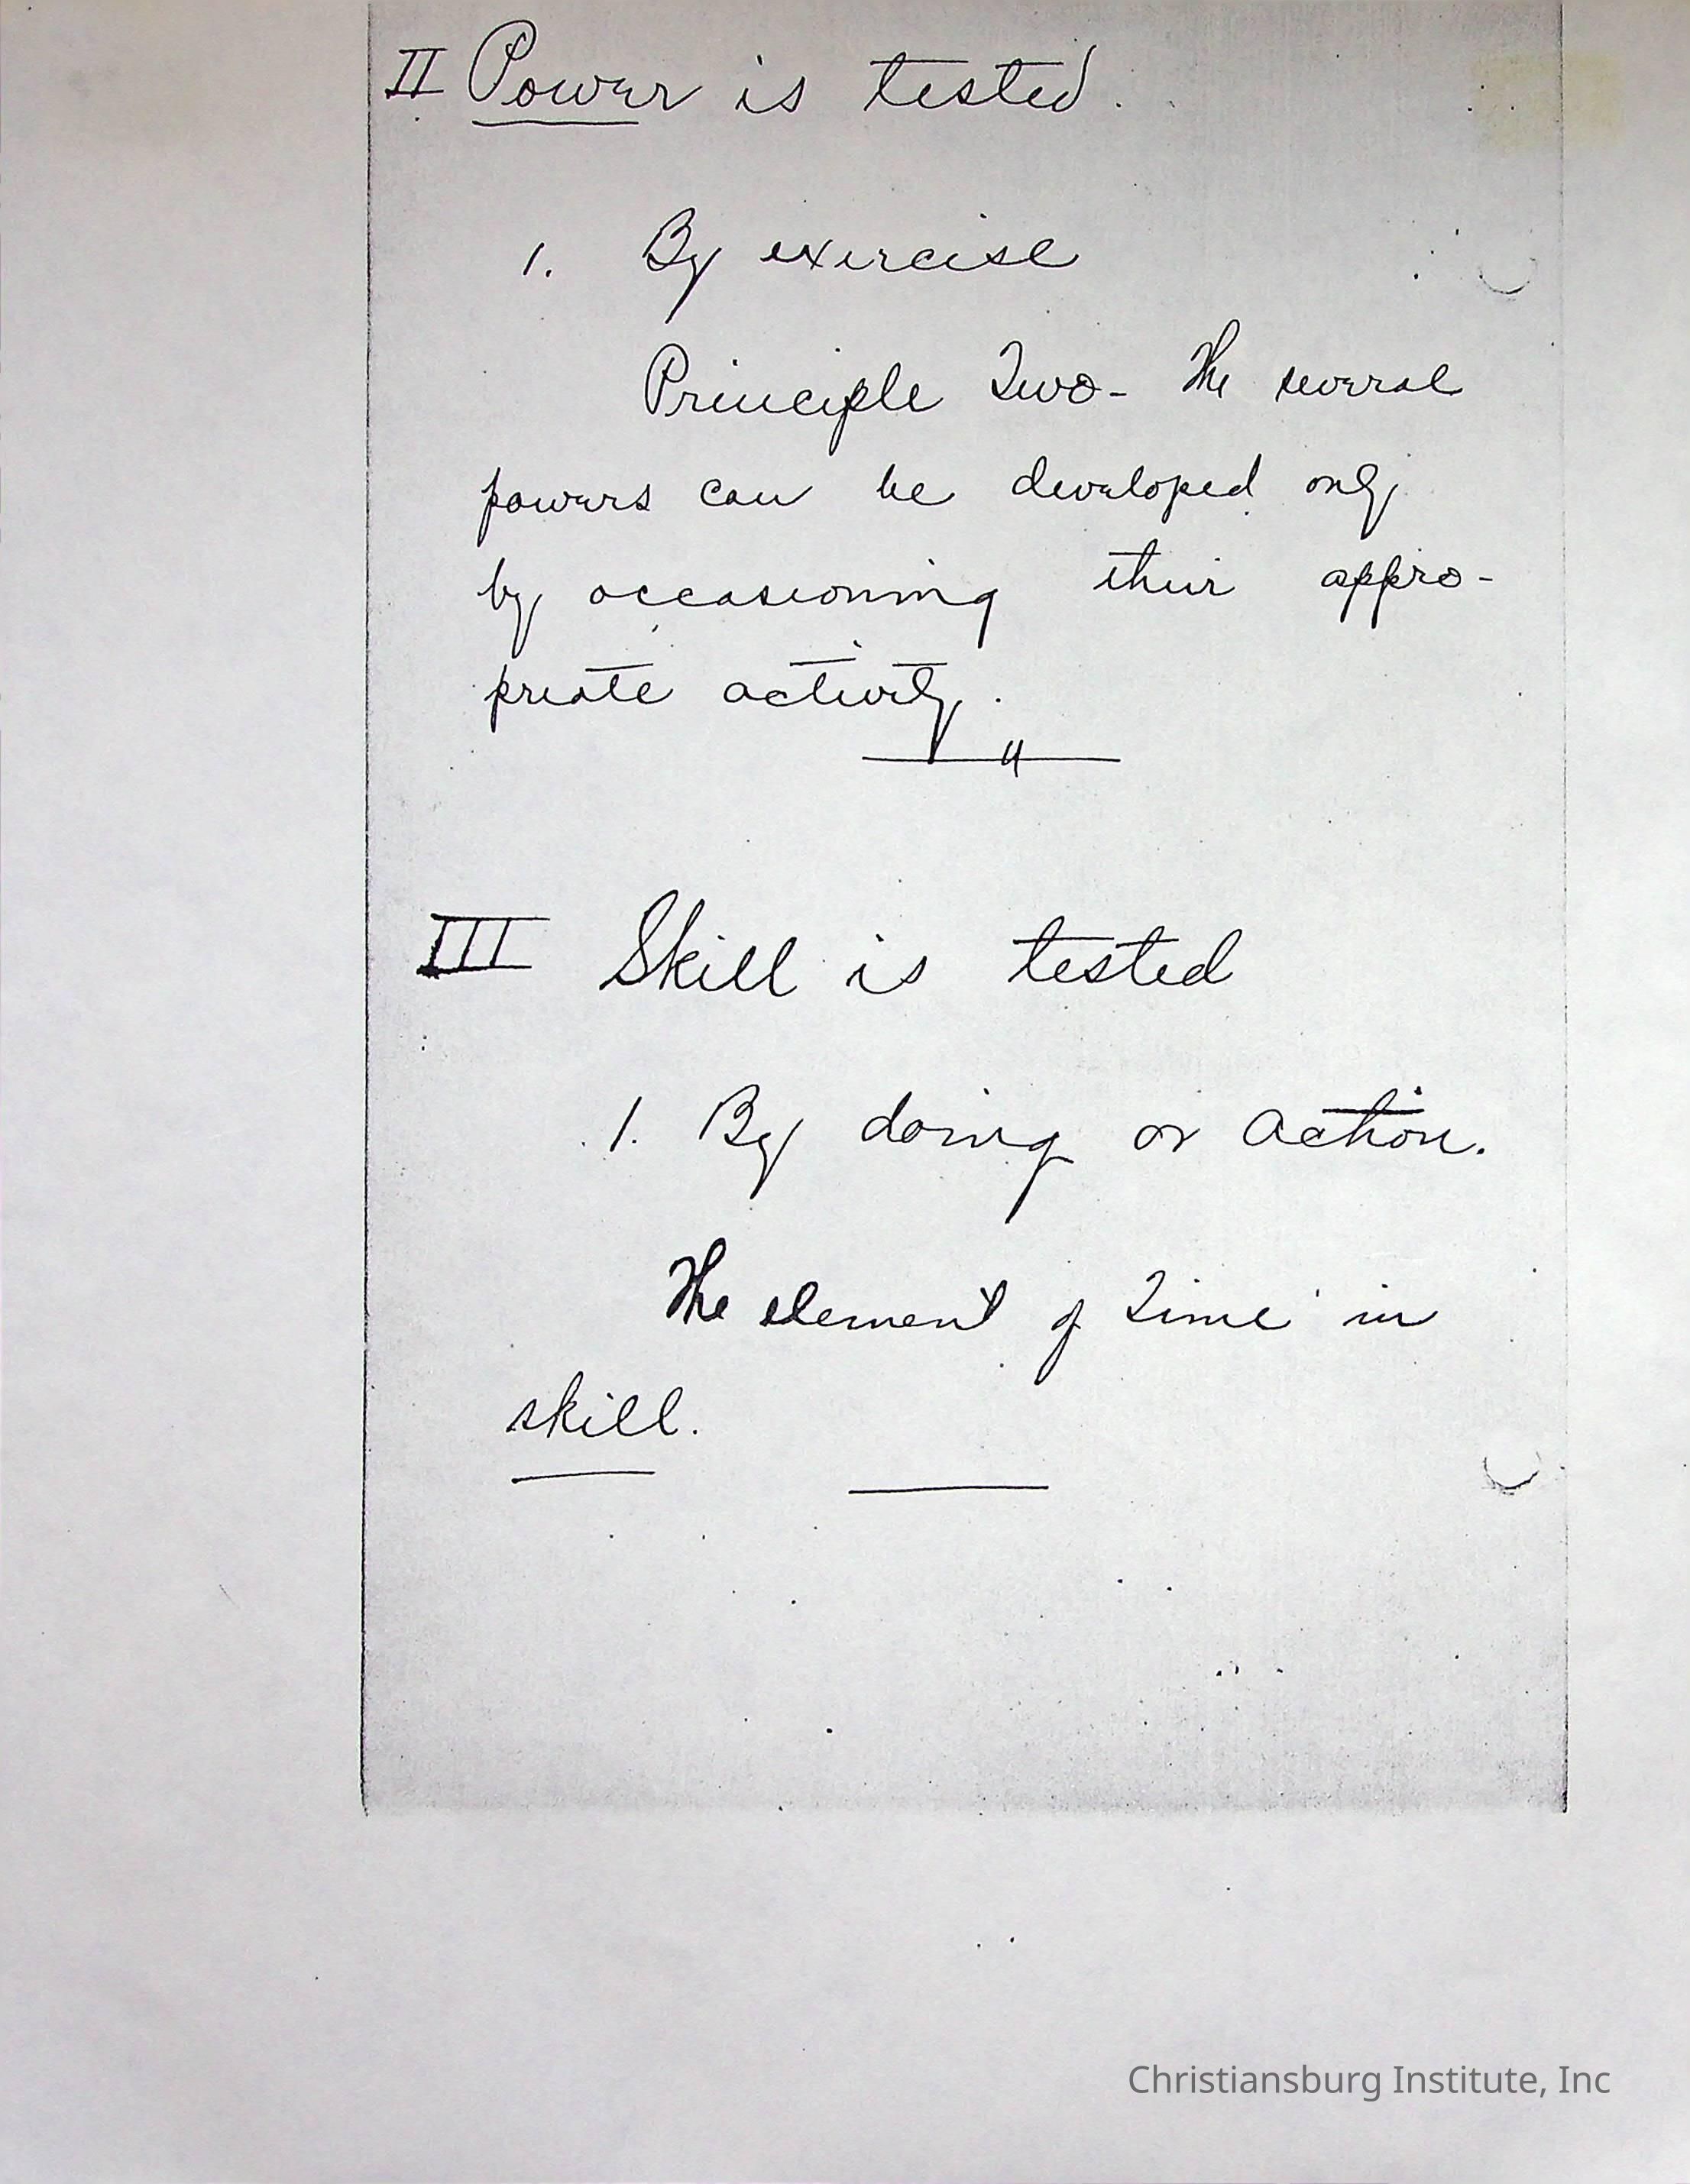 II Power is tested.
1. By exercise
Principle Two- The several
powers can be developed only
by occasioning their appro-
priate activity.
III Skill is tested
1. By doing or action.
The element of Time in
skill.
Christiansburg Institute, Inc